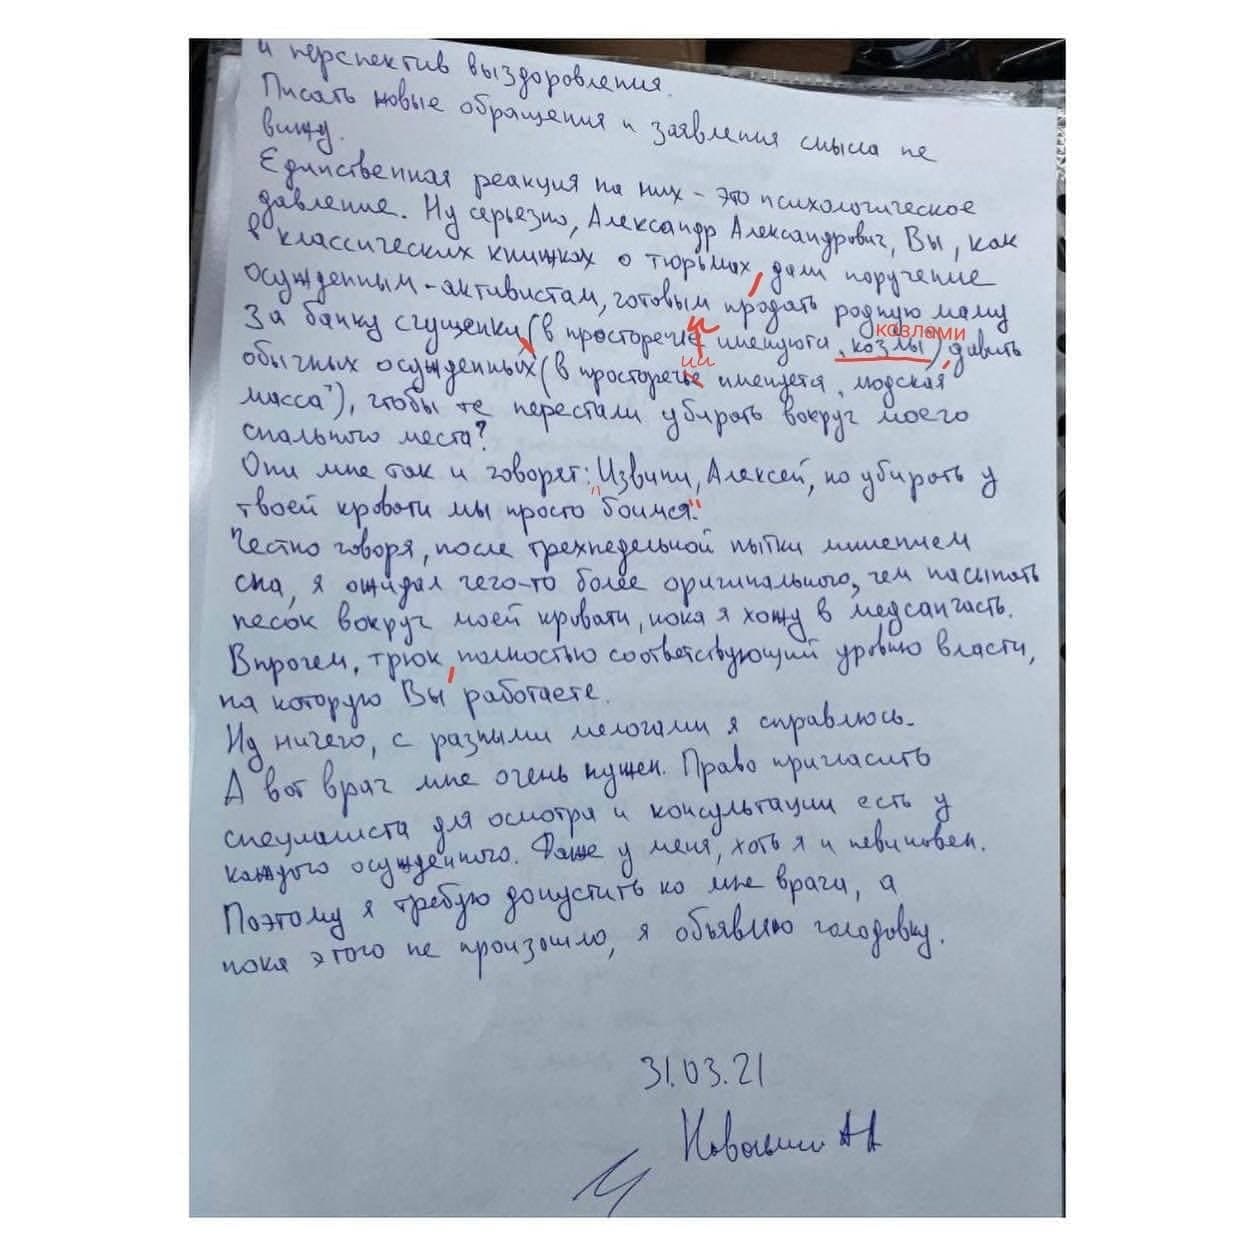 и перспектив выздоровления.
Писать новые обращения и заявления смысла не
вижу.
Единственная реакция на них - это психологическое
давление. Ну серьезно, Александр Александрович, Вы, как
в классических книжках о тюрьмах, дали поручение
осужденным-активистам, готовым продать родную маму
за банку сгущенки (в просторечие именуются "козлы), давить
козлами
обычных осужденных (в просторечье именуется "людская
ии
масса"), чтобы те перестали убирать вокруг моего
спального места?
Они мне так и говорят: "Извини, Алексей, но убирать у
твоей кровати мы просто боимся."
Честно говоря, после трехнедельной пытки лишением
сна, я ожидал чего-то более оригинального, чем насыпать
песок вокруг моей кровати, пока я хожу в медсанчасть.
Впрочем, трюк, полностью соответствующий уровню власти,
на которую Вы работаете.
Ну ничего, с разными мелочами я справлюсь.
А вот врач мне очень нужен. Право пригласить
специалиста для осмотра и консультации есть у
каждого осужденного. Даже у меня, хоть я и невиновен.
Поэтому я требую допустить ко мне врача, а
пока этого не произошло, я объявляю голодовку.
31.03.21
Навальный АА